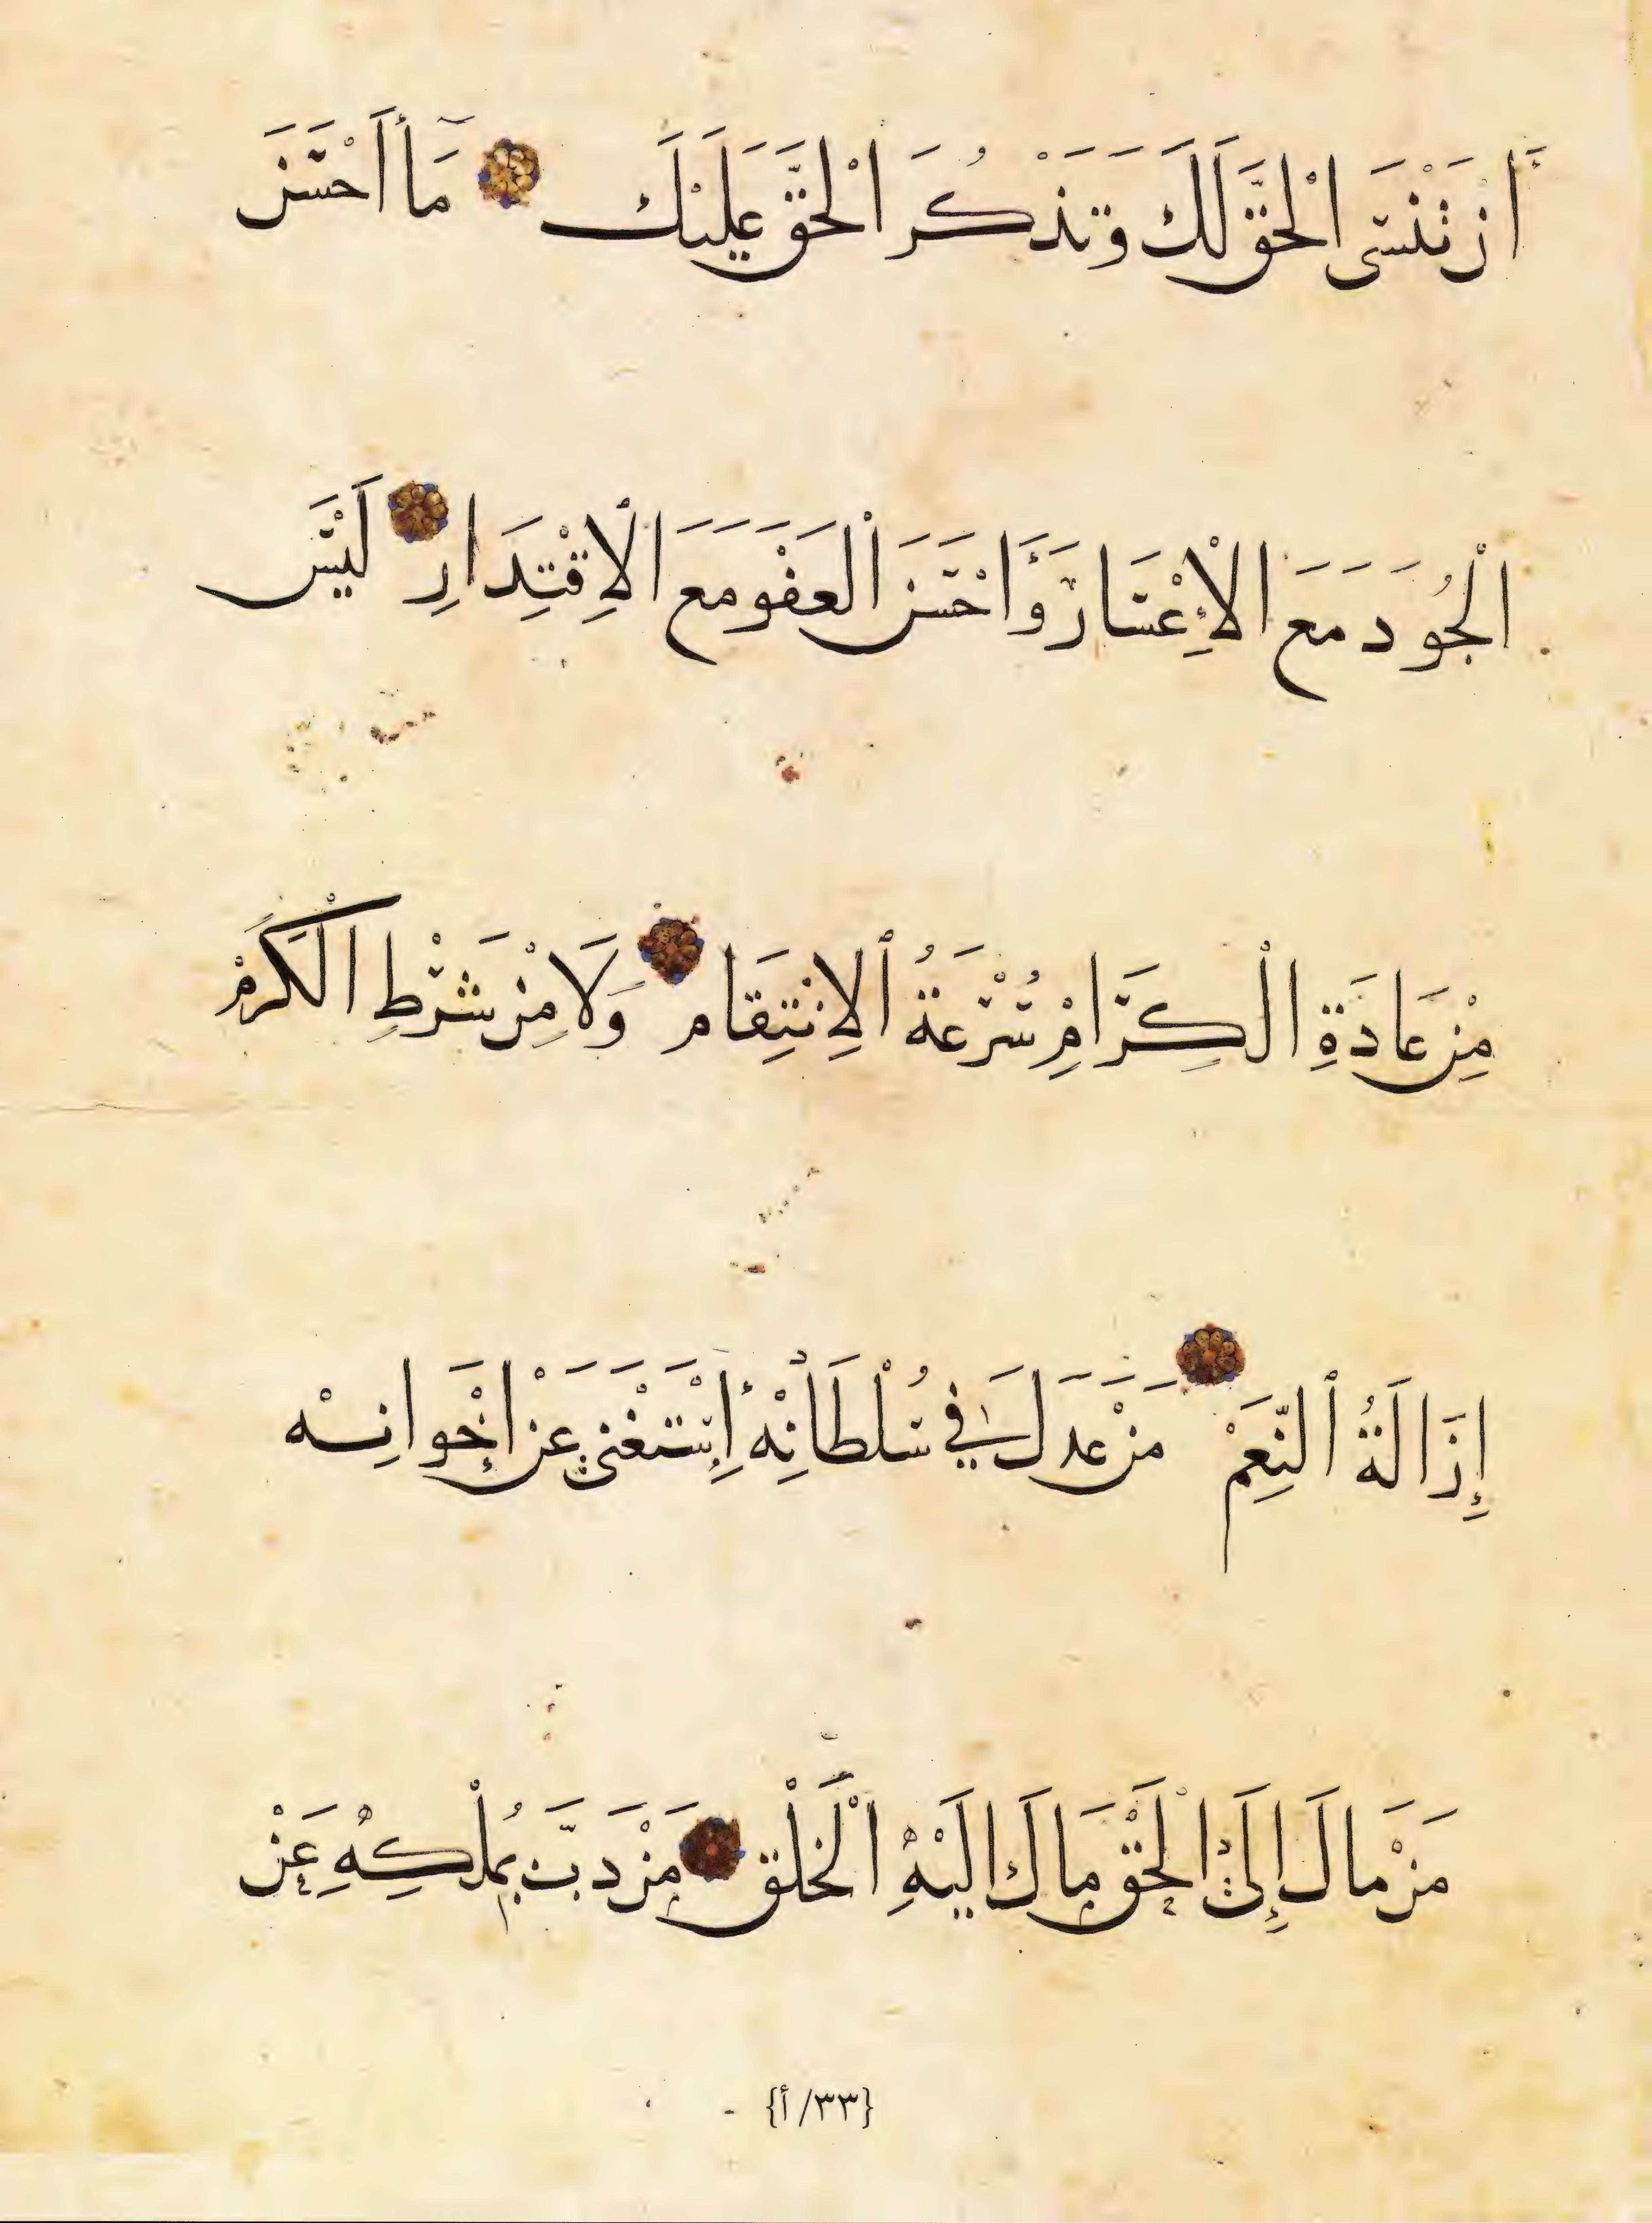 أَنْ تَنْسَى الْحَقَّ لَكَ وَتَذْكُرَ الْحَقَّ عَلَيْكَ مَا أَحْسَنَ
الْجُودَ مَعَ الْإِعْسَارِ وَأَحْسَنَ الْعَفْوَ مَعَ الْاِقْتِدَارِ لَيْسَ
مِنْ عَادَةِ الْكِرَامِ سُرْعَةُ الْاِنْتِقَامِ وَلَا مِنْ شَرْطِ الْكَرَمِ
إِزَالَةُ النِّعَمْ مَنْ عَدَلَ فِي سُلْطَانِهِ إِسْتَغْنَى عَنْ إِخْوَانِهْ
مَنْ مَالَ إِلَى الْحَقِّ مَالَ إِلَيْهِ الْخَلْقُ مَنْ دَبَّ بُمُلْكِهِ عَنْ
{٣٣/أ}